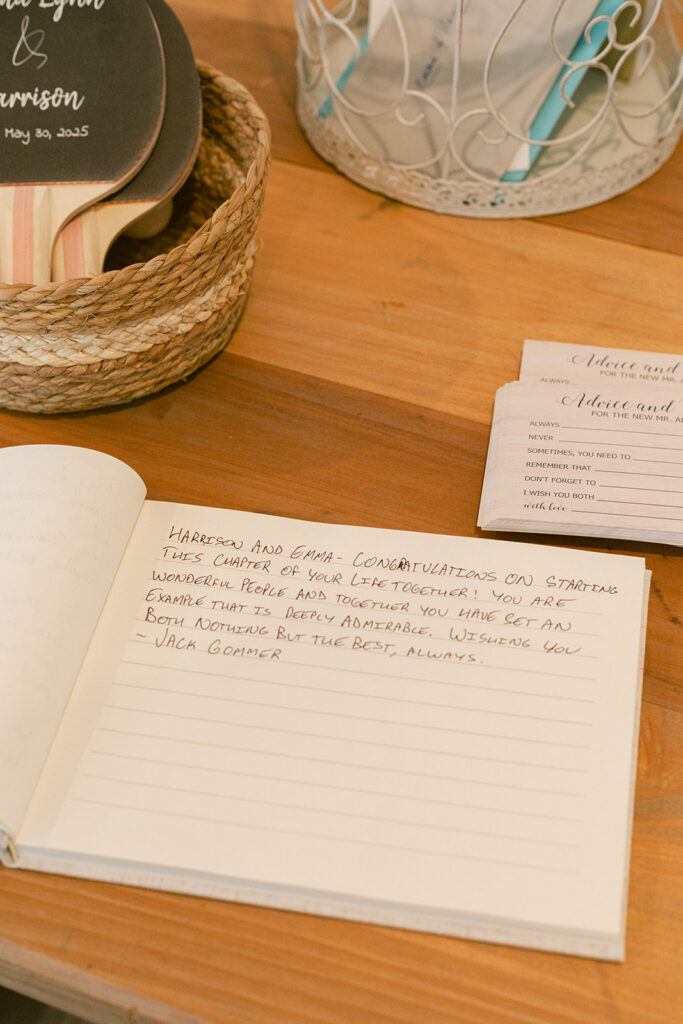 Lynn
&
arrison
May 30, 2025
Advice and
FOR THE NEW MR. A
ALWAYS
Advice and
FOR THE NEW MR. AN
ALWAYS
NEVER
SOMETIMES, YOU NEED TO
REMEMBER THAT
DON'T FORGET TO
I WISH YOU BOTH
with love
HARRISON AND EMMA- CONGRATULATIONS ON STARTING
THIS CHAPTER OF YOUR LIFE TOGETHER! YOU ARE
WONDERFUL PEOPLE AND TOGETHER YOU HAVE SET AN
EXAMPLE THAT IS DEEPLY ADMIRABLE. WISHING YOU
BOTH NOTHING BUT THE BEST, ALWAYS.
- JACK GOMMER